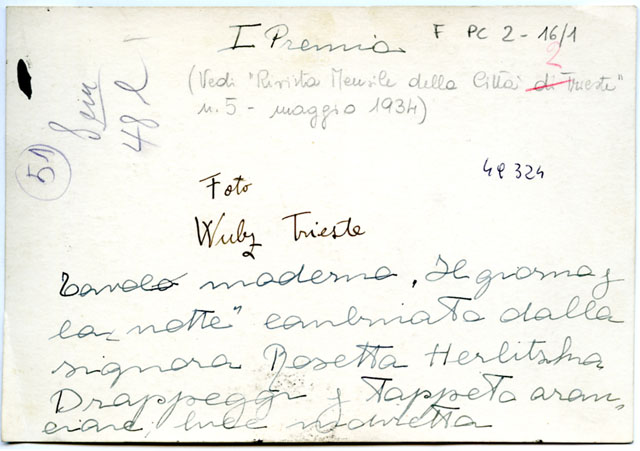 I Premio
F PC 2 - 16/1
2
(Vedi "Rivista Mensile della Città di Trieste"
n. 5 - maggio 1934)
51
48
49324
Foto
Wulz Trieste
Tavolo moderno "Il giorno e
la notte" combinato dalla
signora Rosetta Herlitzka
Drappeggi e tappeto aran-
ciare, luce indiretta